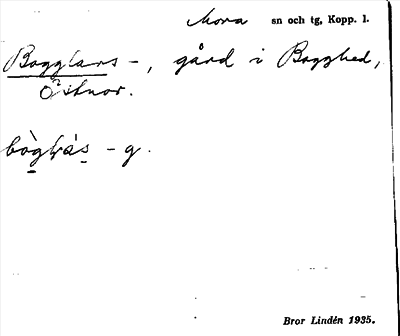 Mora sn och tg, Kopp. l.
Bagglars -, gård i Bagghed,
Östnor.
- g.
Bror Lindén 1935.